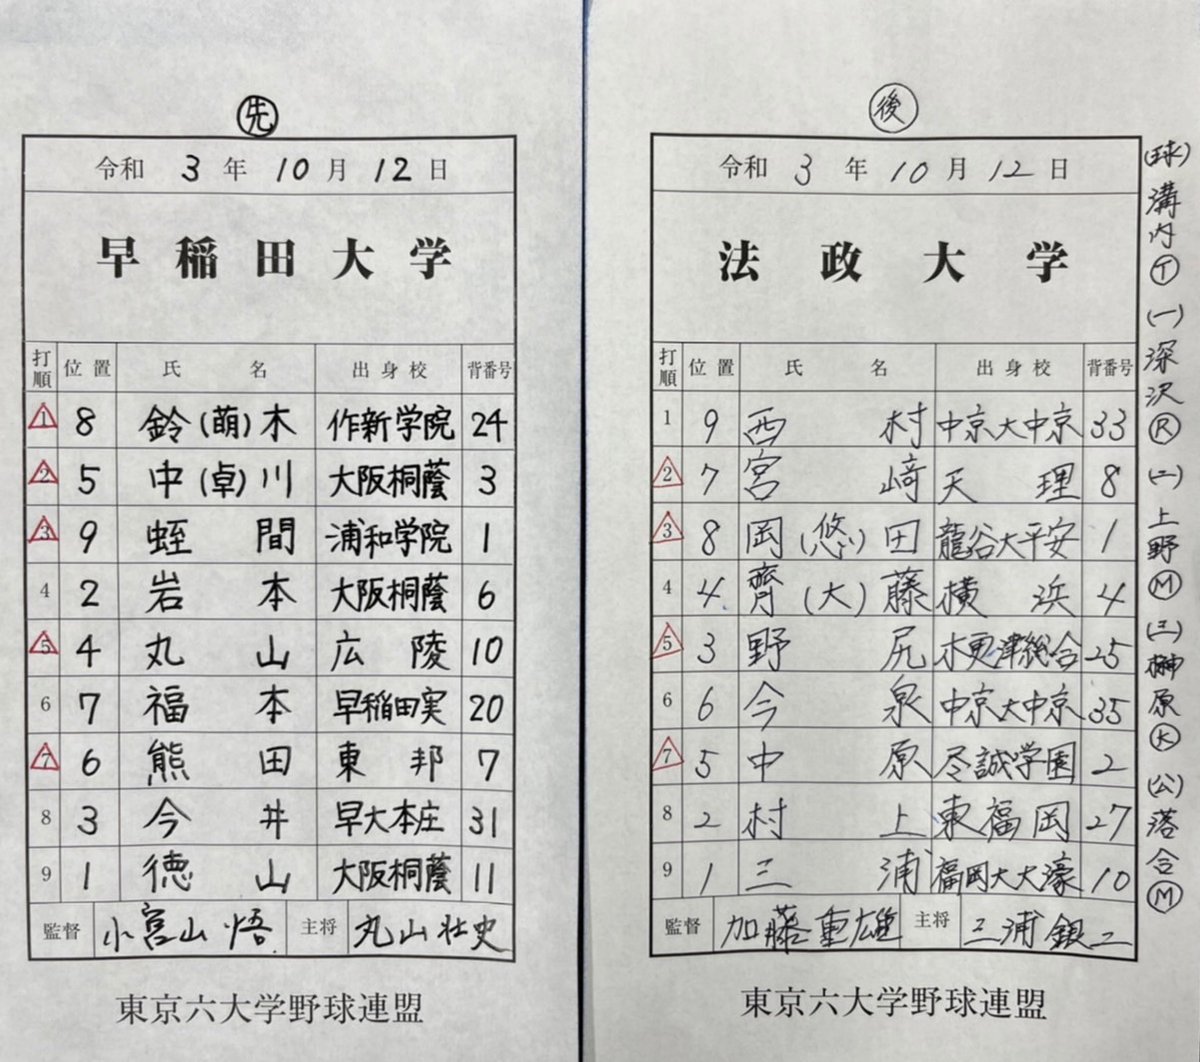 先
令和 3 年 10 月 12 日
早稲田大学
打順 位置 氏名 出身校 背番号
1 8 鈴(萌)木 作新学院 24
2 5 中(卓)川 大阪桐蔭 3
3 9 蛭間 浦和学院 1
4 2 岩本 大阪桐蔭 6
5 4 丸山 広陵 10
6 7 福本 早稲田実 20
7 6 熊田 東邦 7
8 3 今井 早大本庄 31
9 1 徳山 大阪桐蔭 11
監督 小宮山悟 主将 丸山壮史
東京六大学野球連盟
後
令和 3 年 10 月 12 日
法政大学
打順 位置 氏名 出身校 背番号
1 9 西村 中京大中京 33
2 7 宮﨑 天理 8
3 8 岡(悠)田 龍谷大平安 1
4 4 齊(大)藤 横浜 4
5 3 野尻 木更津総合 25
6 6 今泉 中京大中京 35
7 5 中原 尽誠学園 2
8 2 村上 東福岡 27
9 1 三浦 福岡大大濠 10
監督 加藤重雄 主将 三浦銀二
東京六大学野球連盟
(球)溝内Ⓣ (一)深沢Ⓡ (二)上野Ⓜ (三)榊原Ⓚ (公)落合Ⓜ